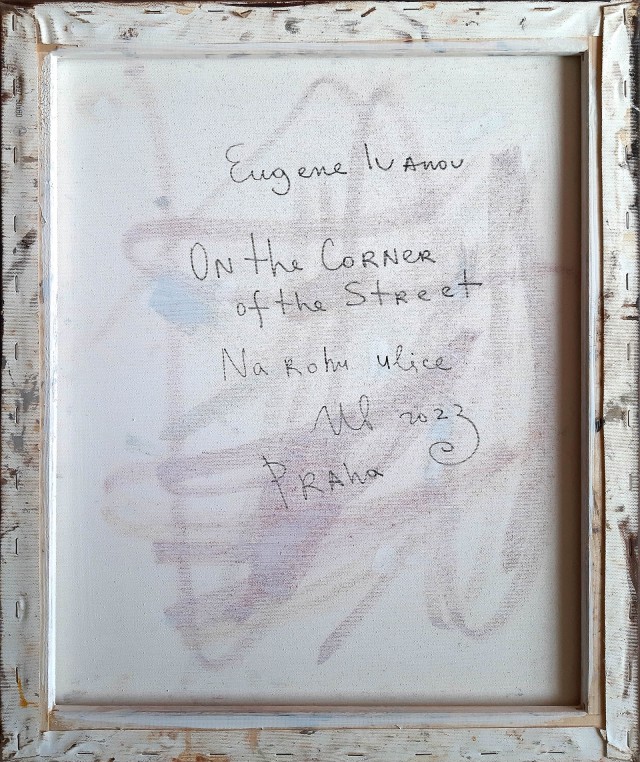 Eugene Ivanov
On the Corner
of the Street
Na rohu ulice
2023
Praha